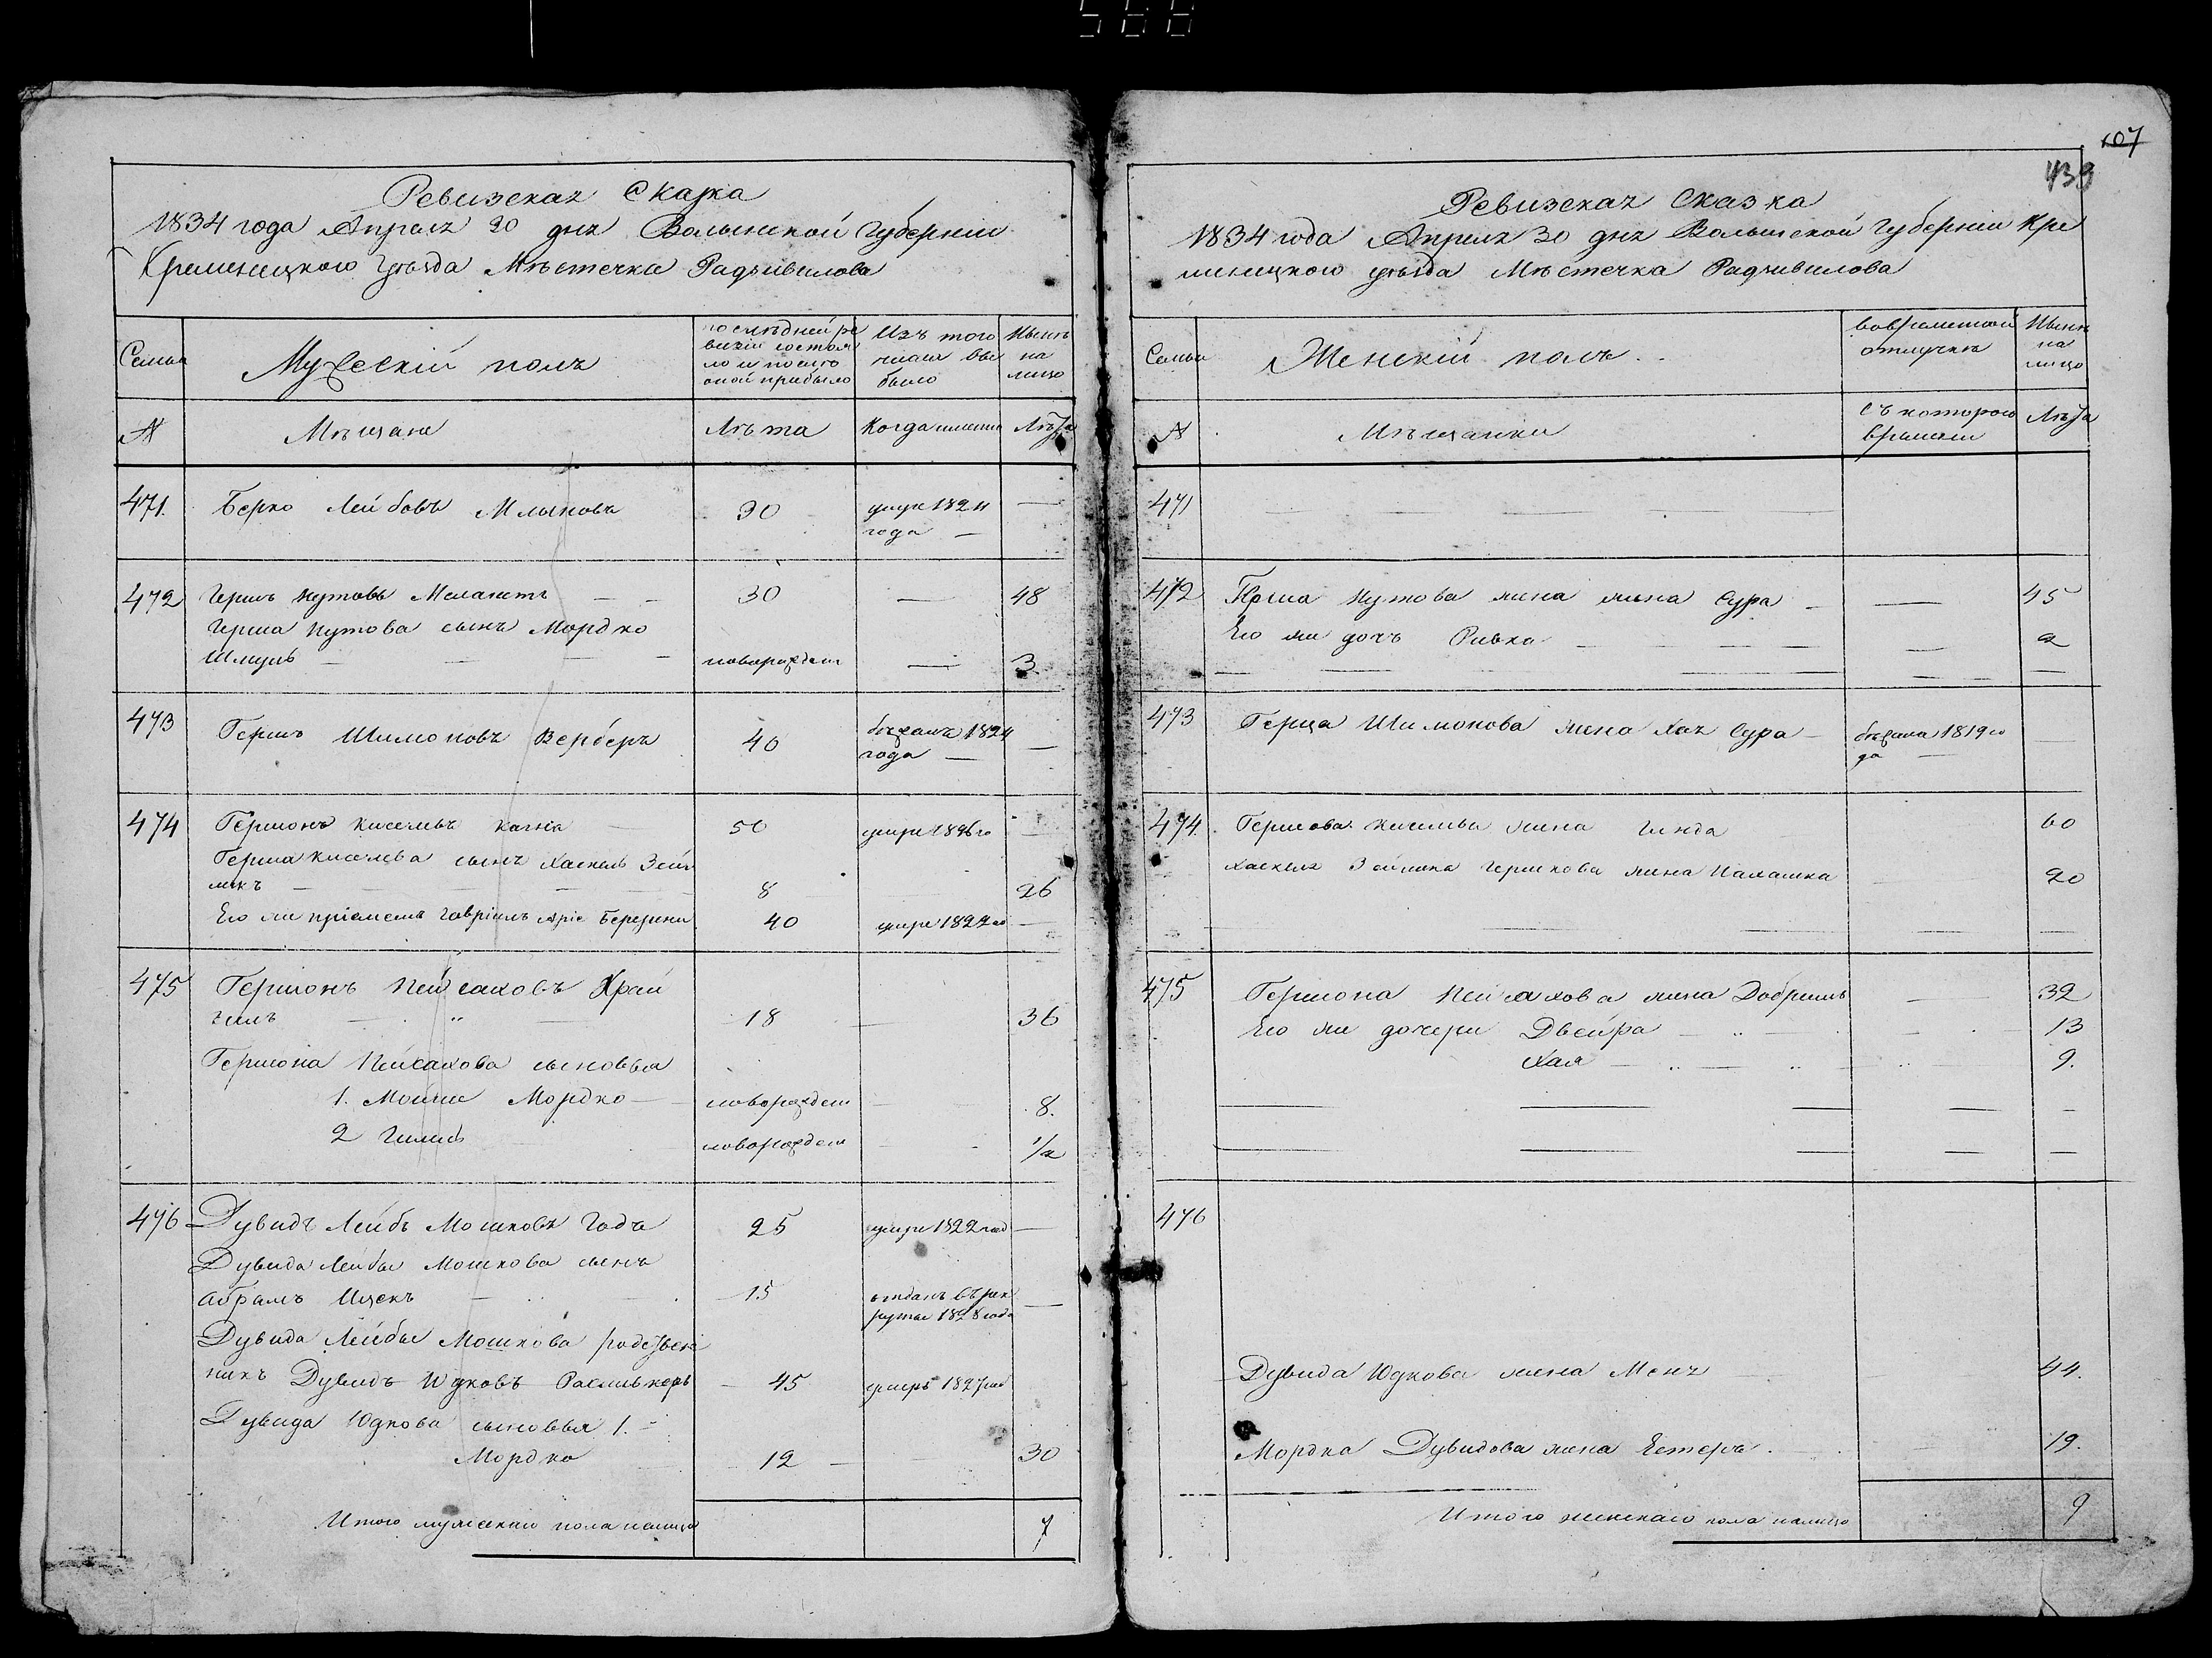 588
Ревизская Сказка
1834 года Апреля 30 дня Волынской Губернии
Кременецкого Уѣзда Мѣстечка Радзивилова
Семьи
Мужескій полъ
последней ре
визіи состоя
ло и после
оной прибыло
Изъ того
числа вы
было
Нынѣ
на
лицо
№
Мѣщане
Лѣта
Когда именно
Лѣта
471.
Берко Лейбовъ Млыновъ
30
умре 1824
года —
472
Гершъ Нутовъ Меламетъ
30
48
Герша Нутова сынъ Мордко
Шмуль
новорожден
3
473
Гершъ Шимоновъ Верберъ
40
бежалъ 1824
года —
474
Гершонъ Киселевъ
50
умре 1826 го
Герша Киселева сынъ Хаскель Зей
8
26
Его же пріемешъ Гавріилъ Аріе
40
умре 1824 го
475
Гершонъ Пейсаховъ Край
18
36
Гершона Пейсахова сыновья
1. Мойше Мордко
новорожден
8.
2
новорожден
1/2
476
Дувидъ Лейбъ Мошковъ Года
25
умре 1822 год
Дувида Лейбы Мошкова сынъ
Абрамъ Ицекъ
15
отданъ въ рек
руты 1828 года
Дувида Лейбы Мошкова родствен
никъ Дувидъ Юдковъ
45
умеръ 1827 год
Дувида Юдкова сыновья 1.
Мордко
12
30
Итого мужескаго пола налицо
7
107
439
Ревизская Сказка
1834 года Апреля 30 дня Волынской Губерніи Кре
менецкого уѣзда Мѣстечка Радзивилова
Семьи
Женскій полъ
вовременной
отлучкѣ
Нынѣ
на
лицо
№
Мѣщанки
съ которого
времени
Лѣта
471
472
Герша Нутова жена Сура
45
Его же дочь Ривка
2
473
Герша Шимонова жена Хая Сура
бѣжала 1819 го
да
474.
Гершова Киселева жена Гинда
60
Хаскеля Зейлика Гершкова жена
20
475
Гершона Пейсахова жена Добришъ
32
Его же дочери Двейра
13
Хая
9.
476
Дувида Юдкова жена Меня
44.
Мордка Дувидова жена Естеръ.
19.
Итого женскаго пола налицо
9